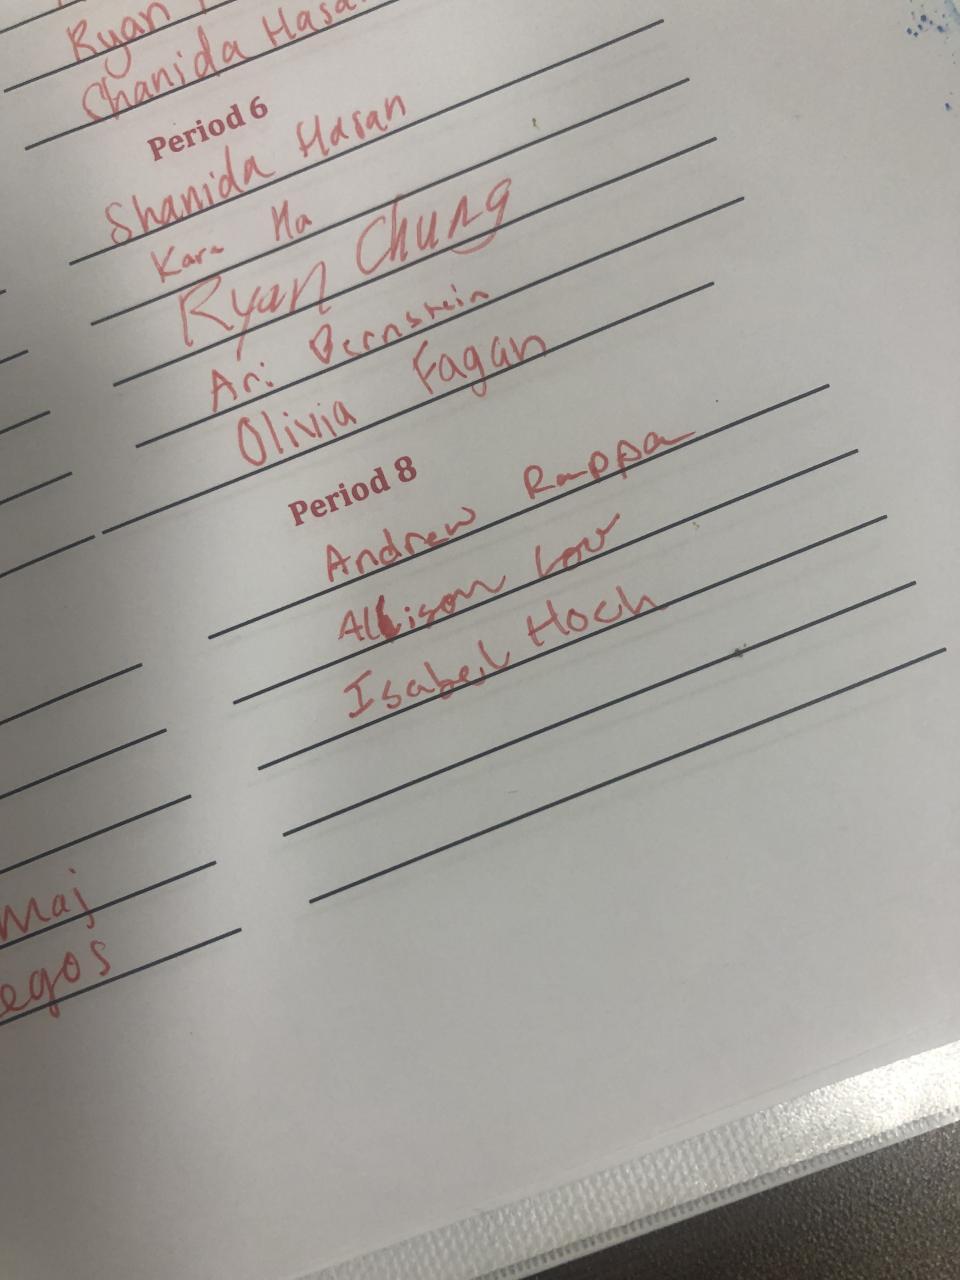 Ryan
Shanida Hasa
Period 6
Shanida Hasan
Kara Ha
Ryan Chung
Ari Bernstein
Olivia Fagan
Period 8
Andrew Rappa
Allison
Isabel Hoch
maj
egos